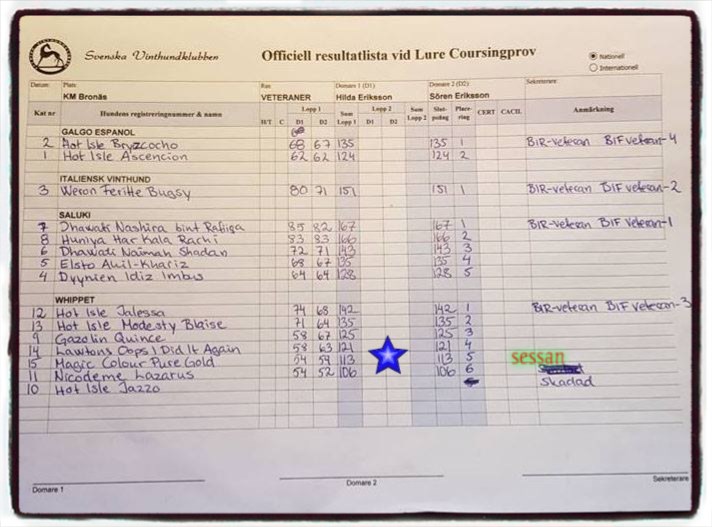 Svenska Vinthundklubben Officiell resultatlista vid Lure Coursingprov
Nationell
Internationell
Datum: Plats: Ras: Domare 1 (D1) Domare 2 (D2) Sekreterare:
KM Bronäs VETERANER Hilda Eriksson Sören Eriksson
Kat nr Hundens registreringnummer & namn H/T C Lopp 1 D1 D2 Sum Lopp 1 Lopp 2 D1 D2 Sum Lopp 2 Slut-poäng Place-ring CERT CACIL Anmärkning
GALGO ESPANOL
2 Hot Isle Bryzcocho 68 67 135 135 1 BIR-veteran BIF veteran-4
1 Hot Isle Ascencion 62 62 124 124 2
ITALIENSK VINTHUND
3 Weron Feritte Bugsy 80 71 151 151 1 BIR-veteran BIF veteran-2
SALUKI
7 Dhawati Nashira bint Rafiiqa 85 82 167 167 1 BIR-veteran BIF veteran-1
8 Huniya Har Kala Rachi 83 83 166 166 2
6 Dhawati Naimah Shadan 72 71 143 143 3
5 Elsto Akil-Khafiz 68 67 135 135 4
4 Idiz Imbus 64 64 128 128 5
WHIPPET
12 Hot Isle Jalessa 74 68 142 142 1 BIR-veteran BIF veteran-3
13 Hot Isle Modesty Blaise 71 64 135 135 2
9 Gazolin Quince 58 67 125 125 3
14 Lawtons Oops I Did It Again 58 63 121 121 4
15 Magic Colour Pure Gold 54 59 113 113 5 sessan
11 Nicodeme Lazarus 54 52 106 106 6
10 Hot Isle Jazzo Skadad
Domare 1 Domare 2 Sekreterare